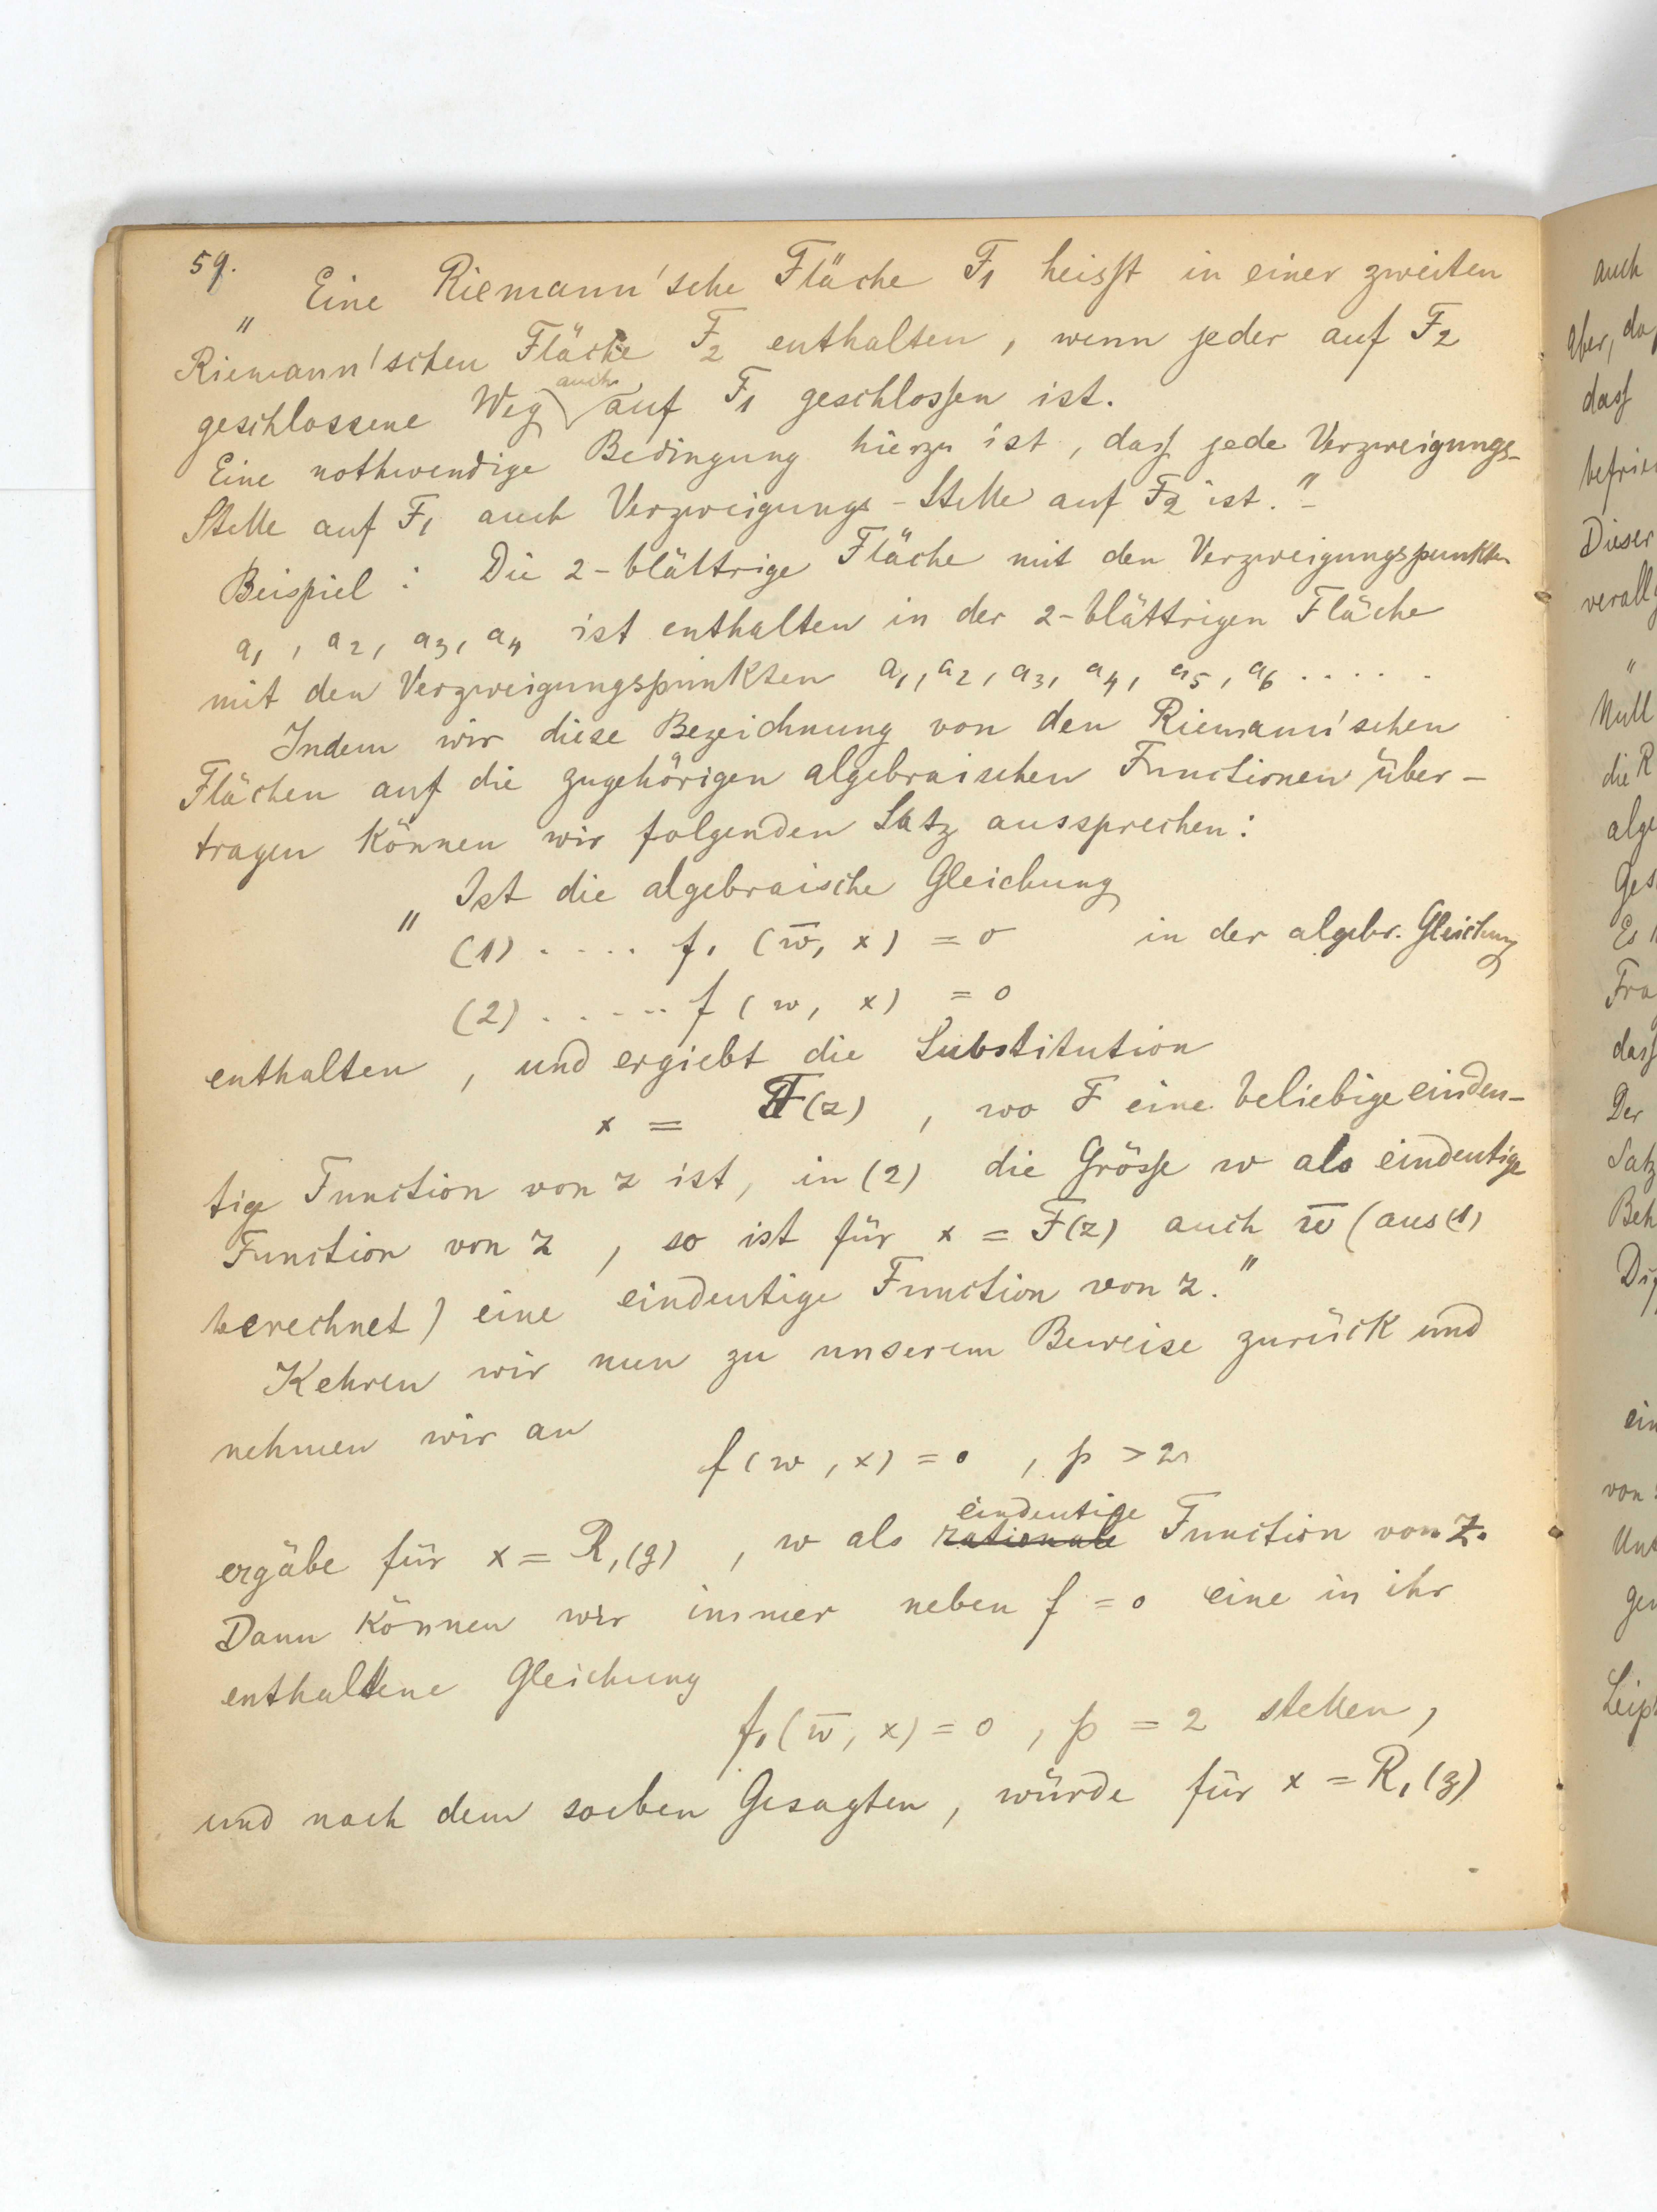 59.
„ Eine Riemann'sche Fläche F₁ heisst in einer zweiten
Riemann'schen Fläche F₂ enthalten, wenn jeder auf F₂
geschlossene Weg auch auf F₁ geschlossen ist.
Eine nothwendige Bedingung hierzu ist, dass jede Verzweigungs-
Stelle auf F₁ auch Verzweigungs-Stelle auf F₂ ist." –
Beispiel: Die 2-blättrige Fläche mit den Verzweigungspunkten
a₁, a₂, a₃, a₄ ist enthalten in der 2-blättrigen Fläche
mit den Verzweigungspunkten a₁, a₂, a₃, a₄, a₅, a₆ . . . . .
Indem wir diese Bezeichnung von den Riemann'schen
Flächen auf die zugehörigen algebraischen Functionen über-
tragen können wir folgenden Satz aussprechen:
„ Ist die algebraische Gleichung
(1) . . . . f₁ (w̅, x) = 0 in der algebr. Gleichung
(2) . . . . . f (w, x) = 0
enthalten, und ergiebt die Substitution
x = F(z), wo F eine beliebige eindeu-
tige Function von z ist, in (2) die Grösse w als eindeutige
Function von z, so ist für x = F(z) auch w̅ (aus (1)
berechnet) eine eindeutige Function von z."
Kehren wir nun zu unserem Beweise zurück und
nehmen wir an
f (w, x) = 0, p > 2
ergäbe für x = R₁(z), w als rationale eindeutige Function von z.
Dann können wir immer neben f = 0 eine in ihr
enthaltene Gleichung
f₁ (w̅, x) = 0, p = 2 stellen,
und nach dem soeben Gesagten, würde für x = R₁(z)
auch
Aber, da
dass
Dieser
Null
die R
Es
dass
Der
Satz
von